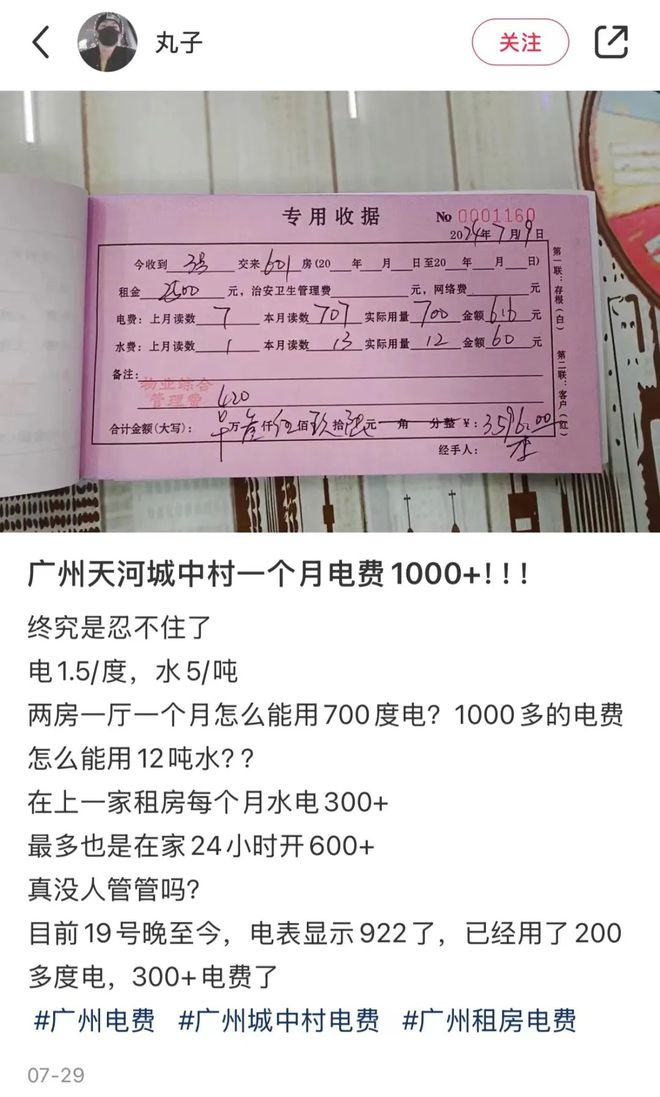 丸子
关注
专用收据
No 0001160
2024年7月19日
今收到 交来601房(20 年 月 日至20 年 月 日)
租金 2500 元，治安卫生管理费 元，网络费 元
电费：上月读数 7 本月读数 707 实际用量 700 金额 616 元
水费：上月读数 1 本月读数 13 实际用量 12 金额 60 元
备注：
物业综合
管理费 420
合计金额(大写)： 万 叁仟 伍佰 玖拾 元 角 分整 ¥：3596.00
经手人：
第一联：存根(白)
第二联：客户(红)
广州天河城中村一个月电费1000+！！！
终究是忍不住了
电1.5/度，水5/吨
两房一厅一个月怎么能用700度电？1000多的电费
怎么能用12吨水？？
在上一家租房每个月水电300+
最多也是在家24小时开600+
真没人管管吗？
目前19号晚至今，电表显示922了，已经用了200
多度电，300+电费了
#广州电费 #广州城中村电费 #广州租房电费
07-29